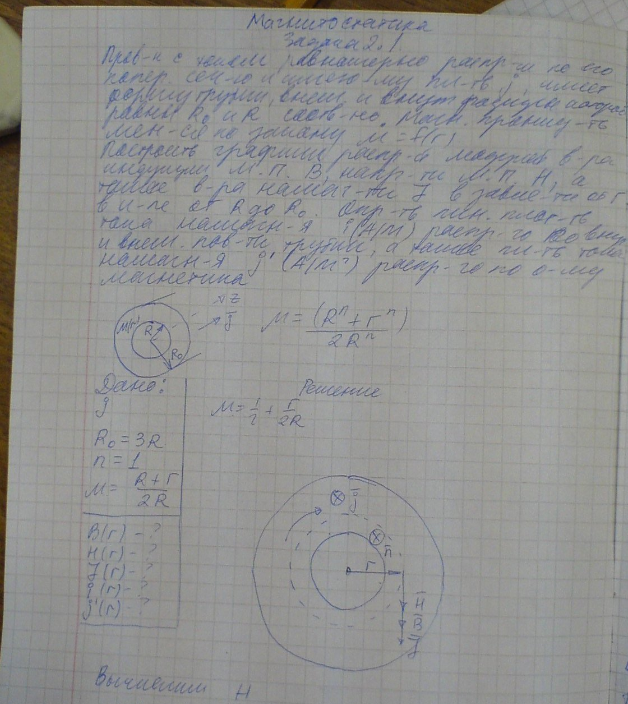 Магнитостатика
Задача 2.1
Пров-к с током, равномерно распр-м по его
попер. сеч-ю и имеет пл-ть j, имеет
форму трубы, внеш. и внут. радиусы
равны R₀ и R соотв-но. Магн. прониц-ть
мен-ся по закону μ = f(r)
Построить графики распр-й модулей в-ра
индукции М.П. B, напр-ти М.П. H, а
также в-ра намаг-ти J в завис-ти от r
в и-ле от R до R₀. Опр-ть лин. плот-ть
тока намагн-я i' (А/м) распр-го по внут
и внеш. пов-ти трубы, а также пл-ть тока
намагн-я j' (А/м²) распр-го по о-му
магнетика
μ(r) R R₀ z j
μ = (Rⁿ + rⁿ) / 2Rⁿ
Дано:
j
R₀ = 3R
n = 1
μ = (R + r) / 2R
B(r) - ?
H(r) - ?
J(r) - ?
j'(r) - ?
Решение
μ = 1/2 + r/2R
j
n
r
H
B
J
Вычислим H